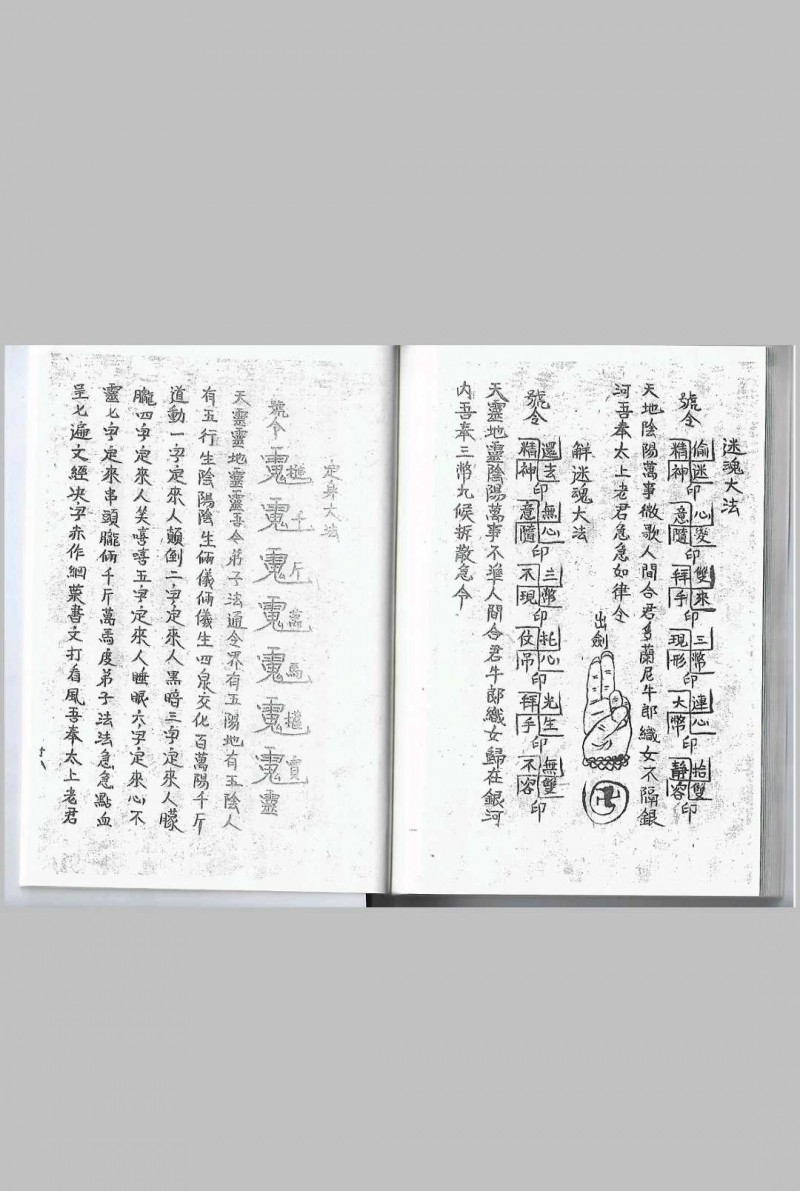 迷魂大法
號令 偷迷精神印 心变意隨印 雙來拜手印 三幣現形印 連心大幣印 抬雙靜容印
天地陰陽萬事微歌人間合君多蘭尼牛郎織女不隔銀
河吾奉太上老君急急如律令
出劍
卍
解迷魂大法
號令 還玄精神印 無心意隨印 三幣不現印 托心仗吊印 光生拜手印 無雙不容印
天靈地靈陰陽萬事不準人間合君牛郎織女歸在銀河
內吾奉三幣九候拆散急令
定身大法
號令 千斤萬 靈
天靈靈地靈靈吾令弟子法通令界有五陽地有五陰人
有五行生陰陽陰生倆儀倆儀生四泉交化百萬陽千斤
道動一字定來人顛倒二字定來人黑暗三字定來人朦
朧四字定來人笑嘻嘻五字定來人睡眠六字定來心不
靈七字定來串頭朧倆千斤萬焉度弟子法法急急點血
呈七遍文經决字赤作細葉書文打看風吾奉太上老君
廿八